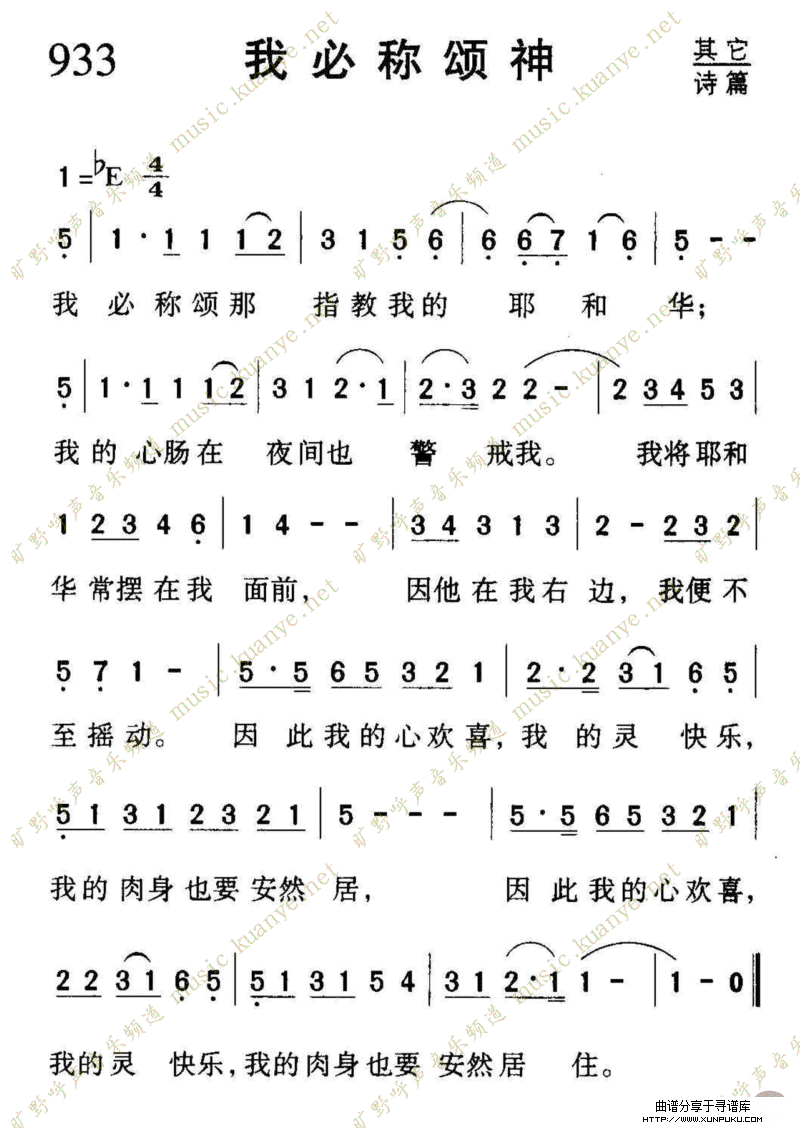 933 我必称颂神 其它
诗篇
1=♭E 4/4
5 | 1·1 1 1 12 | 3 1 5 6 | 6 67 1 6 | 5 - -
我 必 称颂那 指教我的 耶 和 华;
5 | 1·1 1 1 12 | 3 1 2·1 | 2·3 2 2 - | 2 34 5 3
我的心肠在 夜间也 警 戒我。 我将耶和
1 23 4 6 | 1 4 - - | 34 3 1 3 | 2 - - 23 2 |
华常摆在我 面前, 因他在我右边,我便不
5 7 1 - | 5·5 65 32 1 | 2·2 31 6 5 |
至摇动。 因此我的心欢喜,我 的灵 快乐,
51 31 23 21 | 5 - - - | 5·5 65 32 1 |
我的肉身也要安然 居, 因 此我的心欢喜,
22 31 6 5 | 51 31 5 4 | 31 2·1 1 - | 1 - 0 ‖
我的灵 快乐,我的肉身也要 安然居 住。
旷野呼声音乐频道 music.kuanye.net
曲谱分享于寻谱库
HTTP://WWW.XUNPUKU.COM